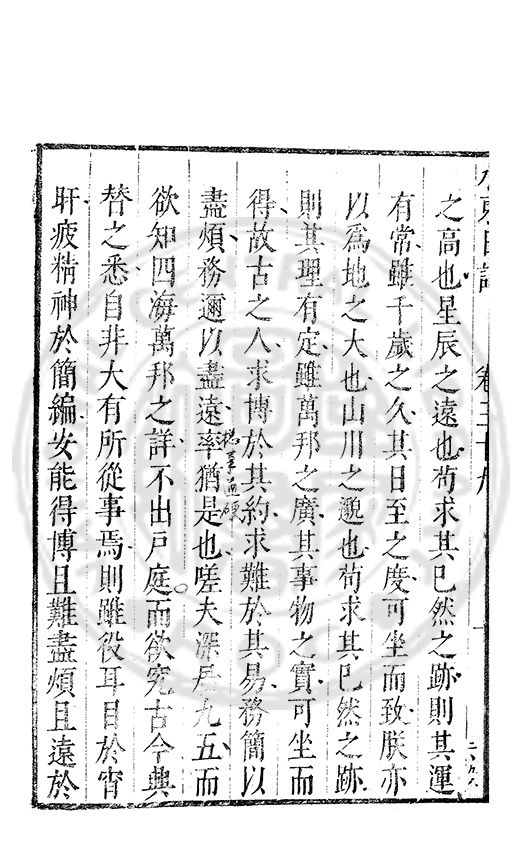 水東日記 卷三十九
之高也星辰之遠也茍求其已然之跡則其運
有常雖千歲之久其日至之度可坐而致朕亦
以爲地之大也山川之邈也茍求其已然之跡
則其理有定雖萬邦之廣其事物之實可坐而
得故古之人求博於其約求難於其易務簡以
盡煩務邇以盡遠率猶是也嗟夫深居九五而
欲知四海萬邦之詳不出戶庭而欲究古今興
替之悉自非大有所從事焉則雖役耳目於宵
旰疲精神於簡編安能得博且難盡煩且遠於